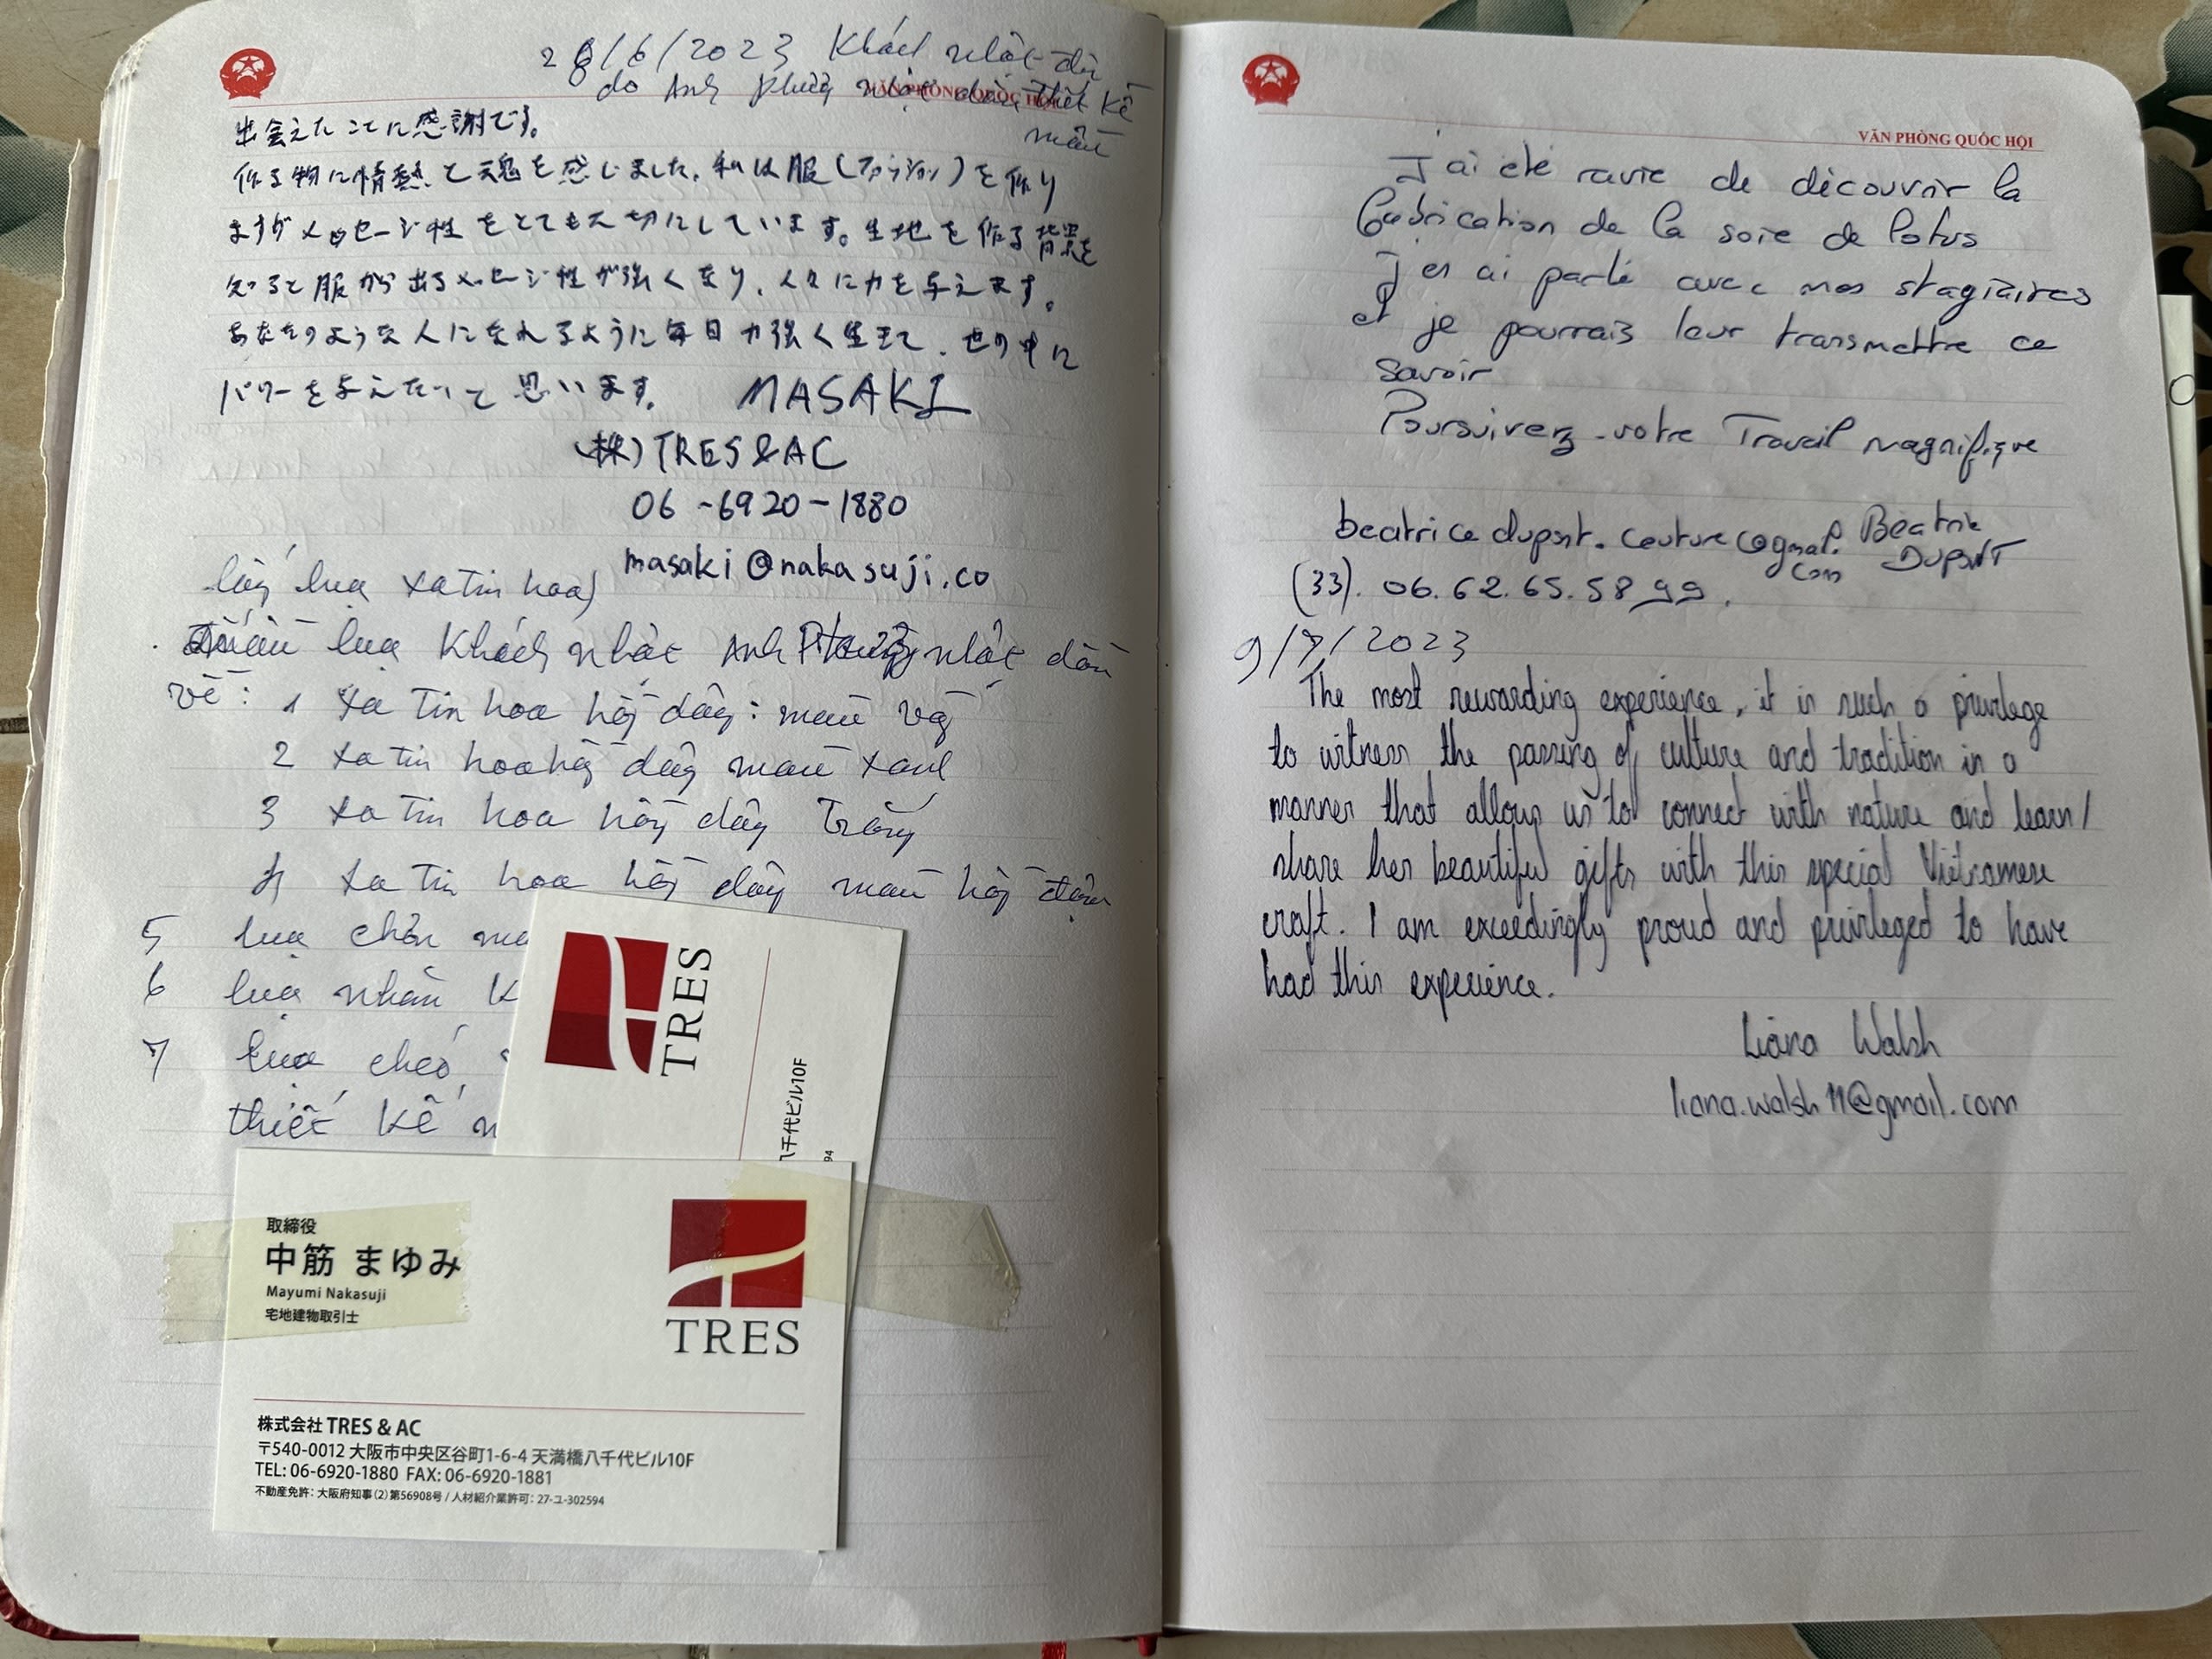 28/6/2023 Khách nhật
do Anh nhật thiết kế
VĂN PHÒNG QUỐC HỘI
màu
出会えたことに感謝です。
作る物に情熱と魂を感じました。私は服(ファッション)を作り
ますがメッセージ性をとても大切にしています。生地を作る背景を
知ると服から出るメッセージ性が強くなり、人々に力を与えます。
あなたのような人になれるように毎日力強く生きて、世の中に
パワーを与えたいと思います。 MASAKI
(株)TRES&AC
06-6920-1880
masaki@nakasuji.co
lấy lụa xa tin hoa
lụa Khách nhật Anh nhật
về: 1 xa tin hoa hồng dây: màu
2 xa tin hoa hồng dây màu xanh
3 xa tin hoa hồng dây Trắng
4 xa tin hoa hồng dây màu hồng
5 lụa
6 lụa
7 lụa chéo
thiết kế
TRES
八千代ビル10F
94
取締役
中筋 まゆみ
Mayumi Nakasuji
宅地建物取引士
TRES
株式会社 TRES & AC
〒540-0012 大阪市中央区谷町1-6-4 天満橋八千代ビル10F
TEL: 06-6920-1880 FAX: 06-6920-1881
不動産免許：大阪府知事(2)第56908号 / 人材紹介業許可：27-ユ-302594
VĂN PHÒNG QUỐC HỘI
J'ai été ravie de découvrir la
fabrication de la soie de lotus
J'en ai parlé avec mes stagiaires
et je pourrais leur transmettre ce
savoir
Poursuivez votre Travail magnifique
beatricedupont.couture@gmail.com
Béatrice DUPONT
(33). 06.62.65.58.99.
9/7/2023
The most rewarding experience, it is such a privilege
to witness the passing of culture and tradition in a
manner that allows us to connect with nature and learn/
share her beautiful gifts with this special Vietnamese
craft. I am exceedingly proud and privileged to have
had this experience.
Liana Walsh
liana.walsh11@gmail.com